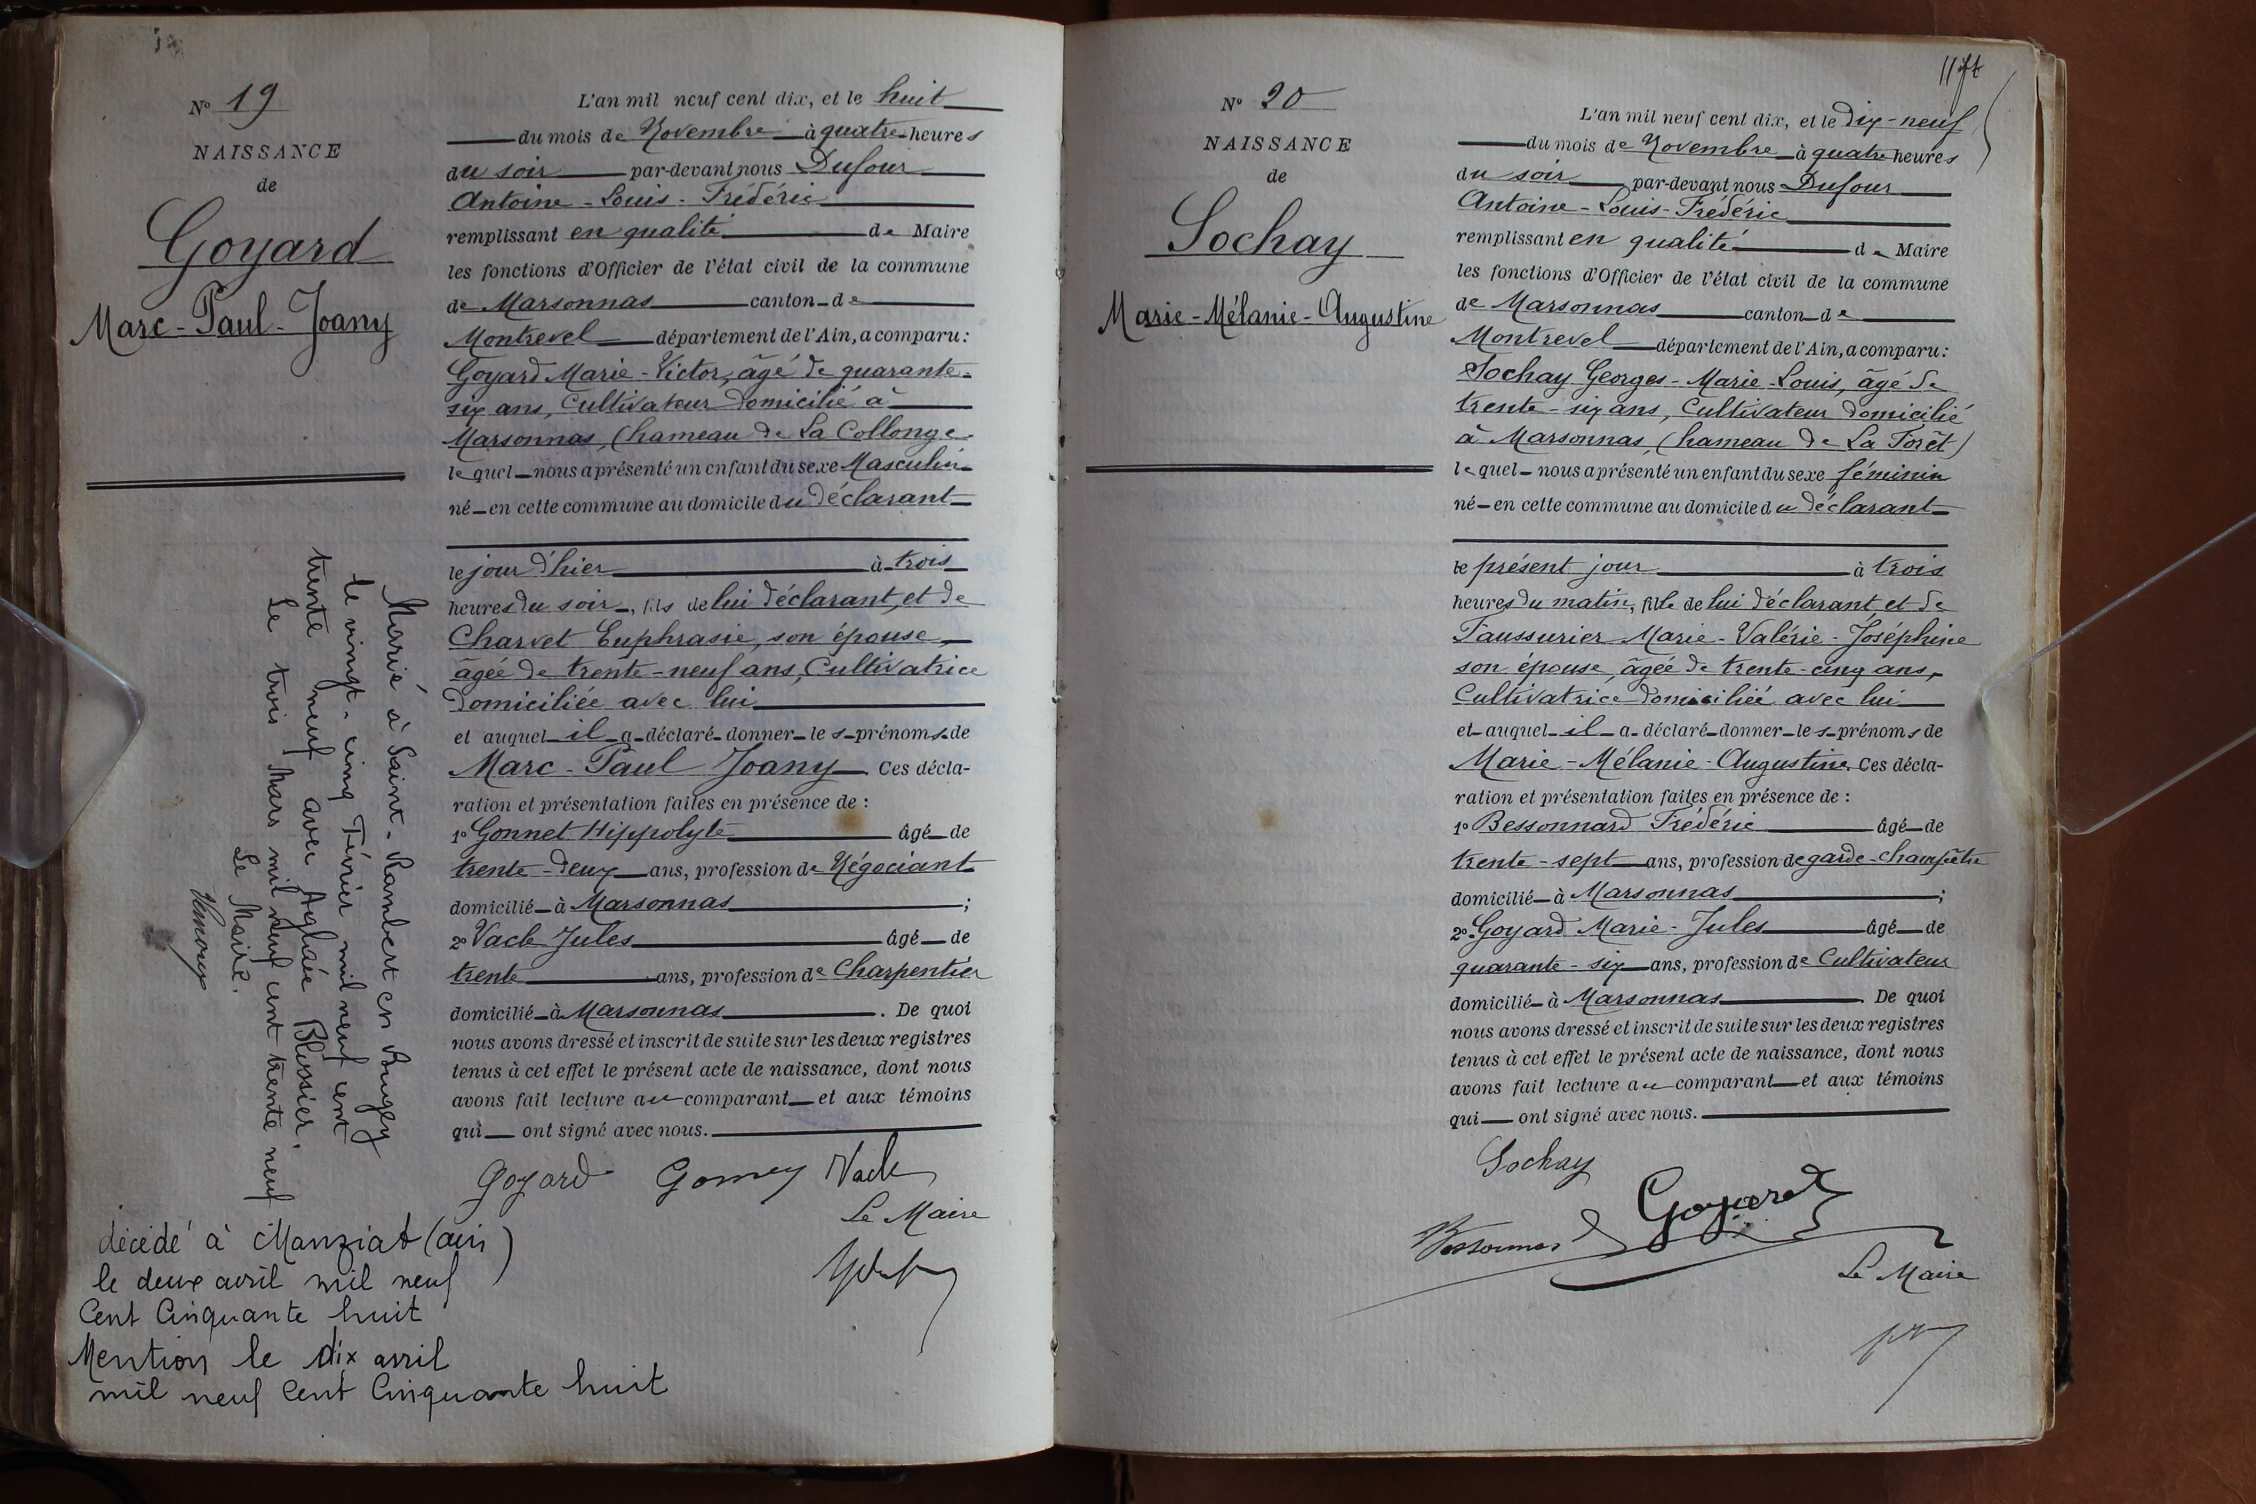 N° 19
NAISSANCE
de
Goyard
Marc-Paul-Joany
L'an mil neuf cent dix, et le huit
du mois de Novembre à quatre heures
du soir par-devant nous Dufour
Antoine-Louis-Frédéric
remplissant en qualité de Maire
les fonctions d'Officier de l'état civil de la commune
de Marsonnas canton de
Montrevel département de l'Ain, a comparu:
Goyard Marie-Victor, âgé de quarante-
six ans, Cultivateur domicilié à
Marsonnas, (hameau de La Collonge
lequel nous a présenté un enfant du sexe Masculin
né en cette commune au domicile du déclarant
le jour d'hier à trois
heures du soir, fils de lui déclarant, et de
Charvet Euphrasie, son épouse,
âgée de trente-neuf ans, Cultivatrice
domiciliée avec lui
et auquel il a déclaré donner les prénoms de
Marc-Paul Joany. Ces décla-
ration et présentation faites en présence de :
1° Gonnet Hippolyte âgé de
trente-deux ans, profession de Négociant
domicilié à Marsonnas ;
2° Vack Jules âgé de
trente ans, profession de Charpentier
domicilié à Marsonnas. De quoi
nous avons dressé et inscrit de suite sur les deux registres
tenus à cet effet le présent acte de naissance, dont nous
avons fait lecture au comparant et aux témoins
qui ont signé avec nous.
Goyard Vack
Le Maire
Marié à Saint-Rambert en Bugey
le vingt-cinq Février mil neuf cent
trente neuf avec Aglaée Blussier.
Le trois Mars mil neuf cent trente neuf
Le Maire.
décédé à Manziat (ain)
le deux avril mil neuf
Cent Cinquante huit
Mention le dix avril
mil neuf Cent Cinquante huit
N° 20
NAISSANCE
de
Sochay
Marie-Mélanie-Augustine
L'an mil neuf cent dix, et le dix-neuf
du mois de Novembre à quatre heures
du soir par-devant nous Dufour
Antoine-Louis-Frédéric
remplissant en qualité de Maire
les fonctions d'Officier de l'état civil de la commune
de Marsonnas canton de
Montrevel département de l'Ain, a comparu:
Sochay Georges-Marie-Louis, âgé de
trente-six ans, Cultivateur domicilié
à Marsonnas, (hameau de La Forêt)
lequel nous a présenté un enfant du sexe féminin
né en cette commune au domicile du déclarant
le présent jour à trois
heures du matin, fille de lui déclarant et de
Faussurier Marie-Valérie-Joséphine
son épouse, âgée de trente-cinq ans,
Cultivatrice domiciliée avec lui
et auquel il a déclaré donner les prénoms de
Marie-Mélanie-Augustine. Ces décla-
ration et présentation faites en présence de :
1° Bessonnard Frédéric âgé de
trente-sept ans, profession de garde-champêtre
domicilié à Marsonnas ;
2° Goyard Marie-Jules âgé de
quarante-six ans, profession de Cultivateur
domicilié à Marsonnas. De quoi
nous avons dressé et inscrit de suite sur les deux registres
tenus à cet effet le présent acte de naissance, dont nous
avons fait lecture au comparant et aux témoins
qui ont signé avec nous.
Sochay
Goyard
Le Maire